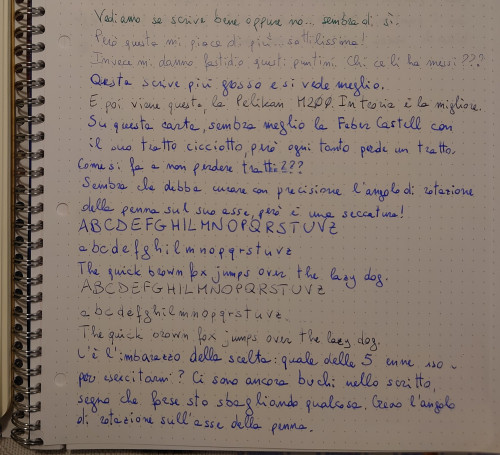 Vediamo se scrive bene oppure no... sembra di sì.
Però questa mi piace di più... sottilissima!
Invece mi danno fastidio questi puntini. Chi ce li ha messi???
Questa scrive più grosso e si vede meglio.
E poi viene questa, la Pelikan M200. In teoria è la migliore.
Su questa carta, sembra meglio la Faber Castell con
il suo tratto cicciotto, però ogni tanto perde un tratto.
Come si fa a non perdere tratti???
Sembra che debba curare con precisione l'angolo di rotazione
della penna sul suo asse, però è una seccatura!
ABCDEFGHILMNOPQRSTUVZ
abcdefghilmnopqrstuvz
The quick brown fox jumps over the lazy dog.
ABCDEFGHILMNOPQRSTUVZ
abcdefghilmnopqrstuvz.
The quick brown fox jumps over the lazy dog.
C'è l'imbarazzo della scelta: quale delle 5 uso
per esercitarmi? Ci sono ancora buchi nello scritto,
segno che forse sto sbagliando qualcosa. l'angolo
di rotazione sull'asse della penna.